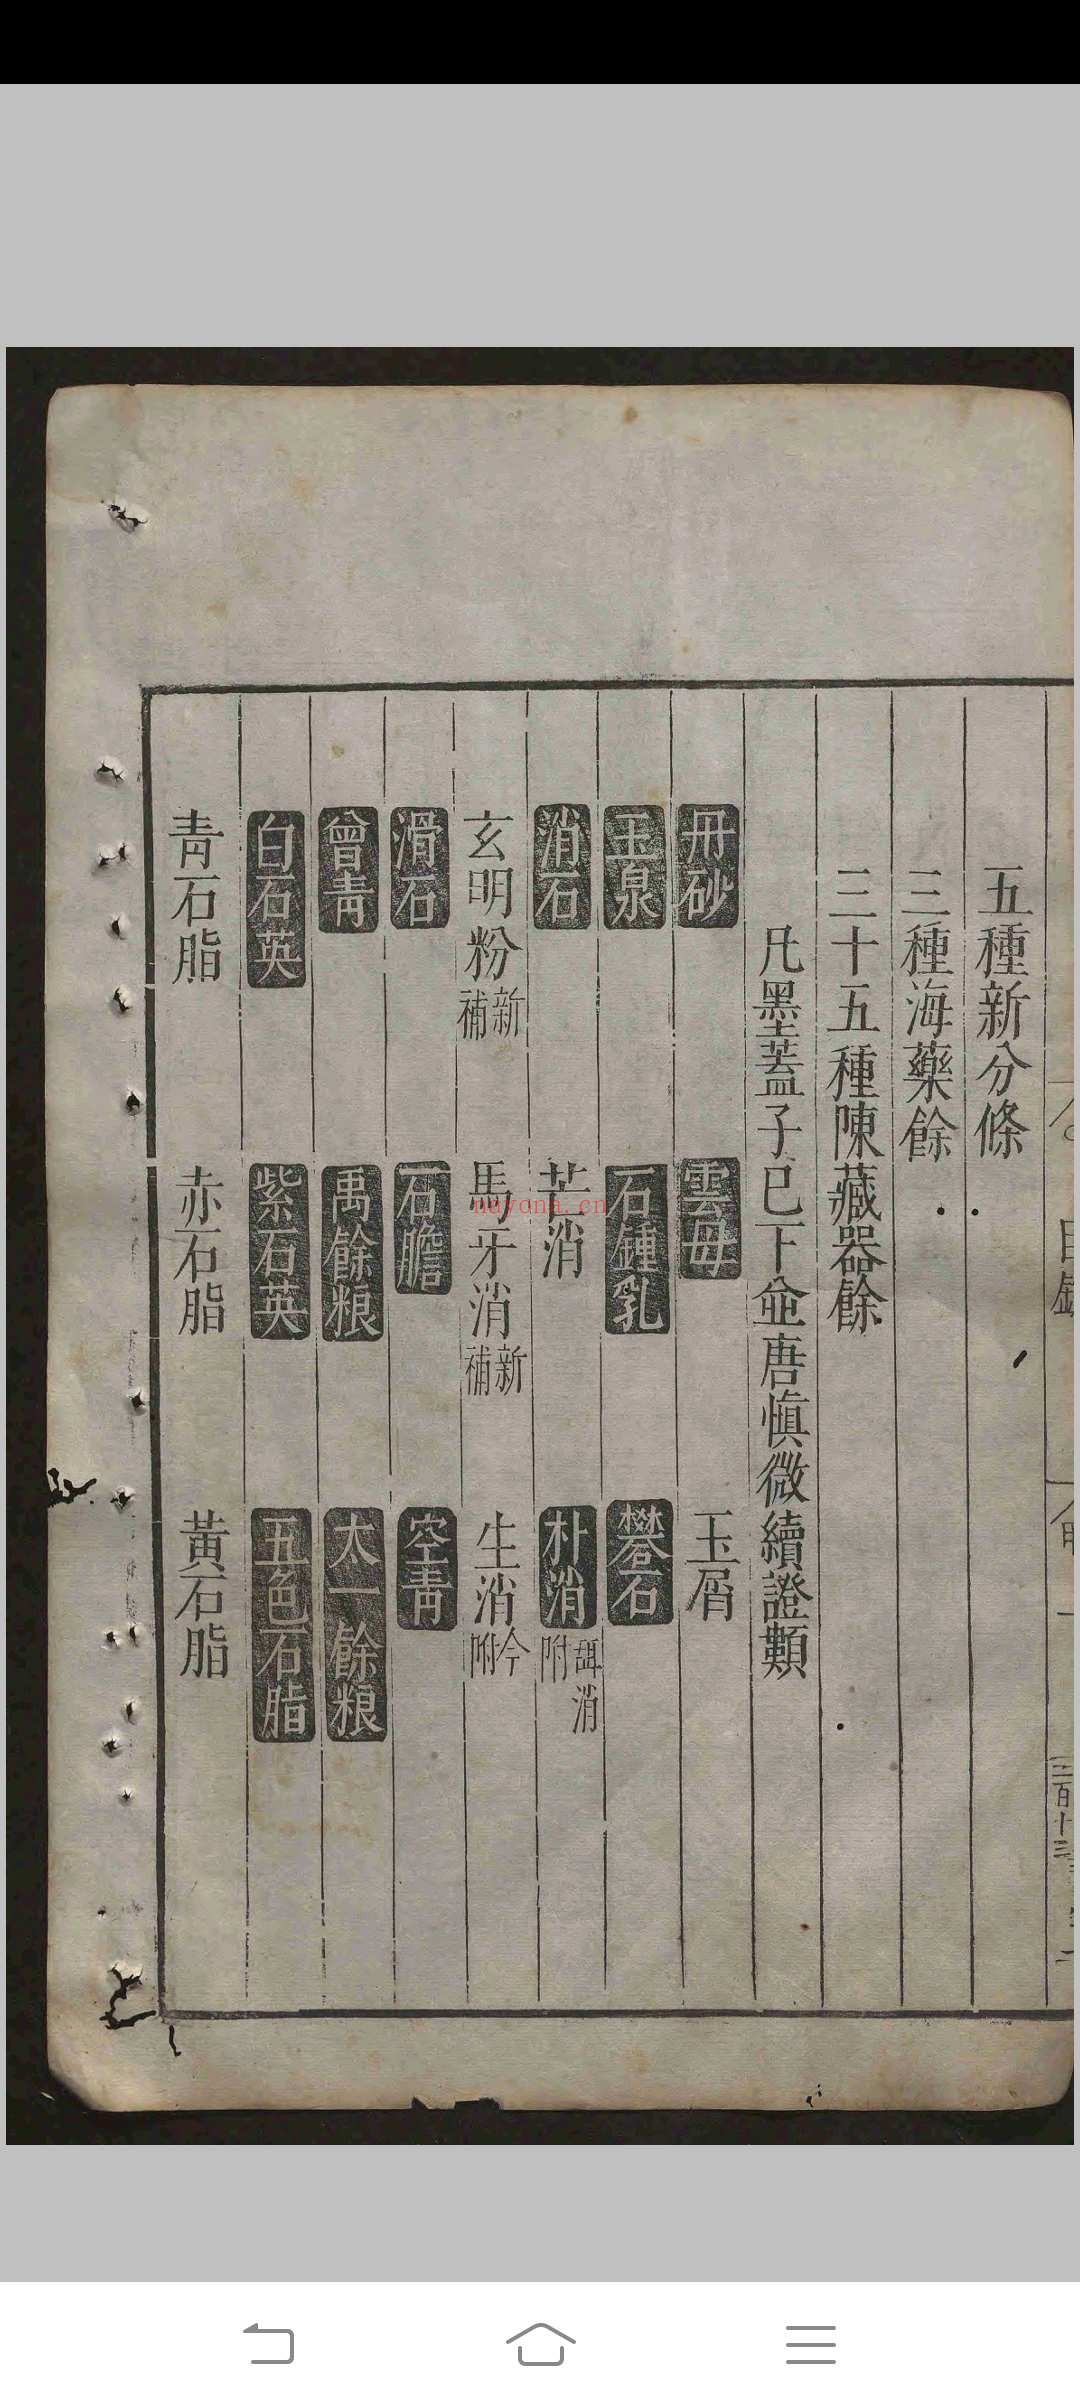 五種新分條
三種海藥餘
三十五種陳藏器餘
凡墨蓋子已下並唐慎微續證類
丹砂 雲母 玉屑
玉泉 石鍾乳 礬石
消石 芒消 朴消 消附
玄明粉 新補 馬牙消 新補 生消 今附
滑石 石膽 空青
曾青 禹餘粮 太一餘粮
白石英 紫石英 五色石脂
青石脂 赤石脂 黃石脂
nayona.cn